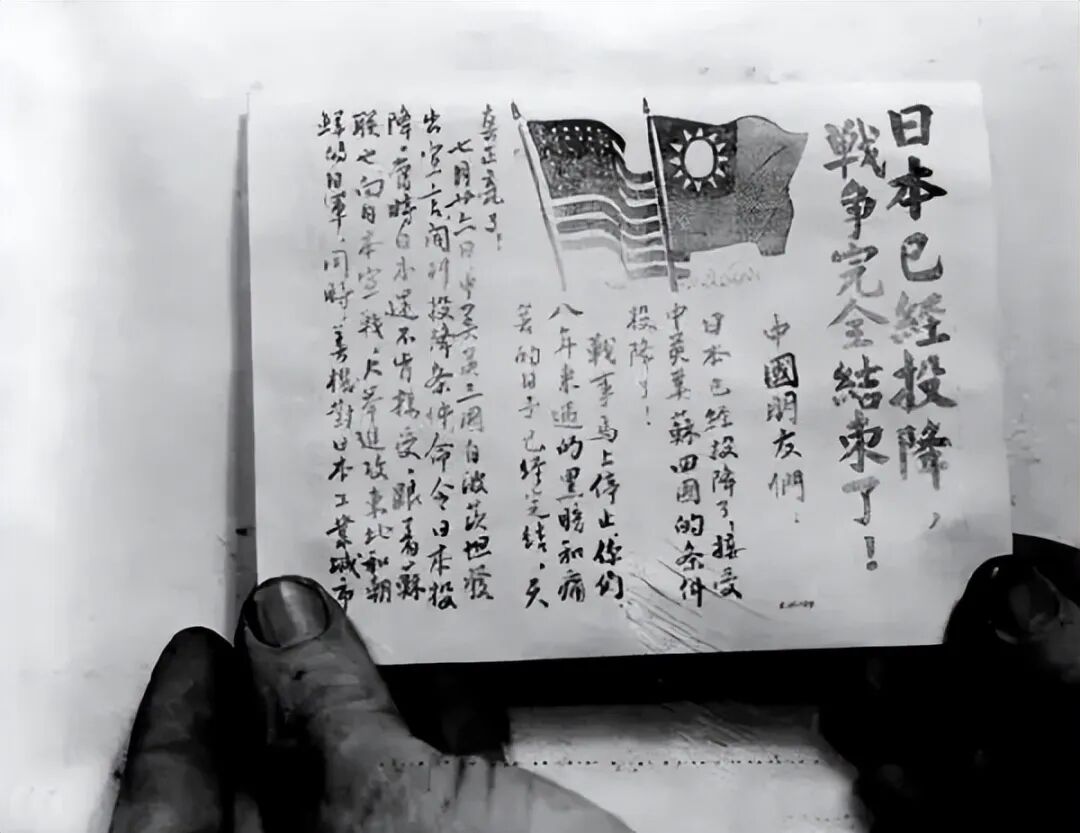 日本已経投降，
戰争完全結束了！
中國朋友們：
日本已經投降了，接受
中英美蘇四國的条件
投降了！
戰事馬上停止，你们
八年来过的黑暗和痛
苦的日子已經完結，天
真正亮了！
七月廿六日中美英三国自波茨坦發
出宣言，開列投降条件命令日本投
降，當時日本還不肯接受，跟着蘇
联也向日本宣戰，大举進攻東北和朝
鮮的日軍，同時，美機對日本工業城市